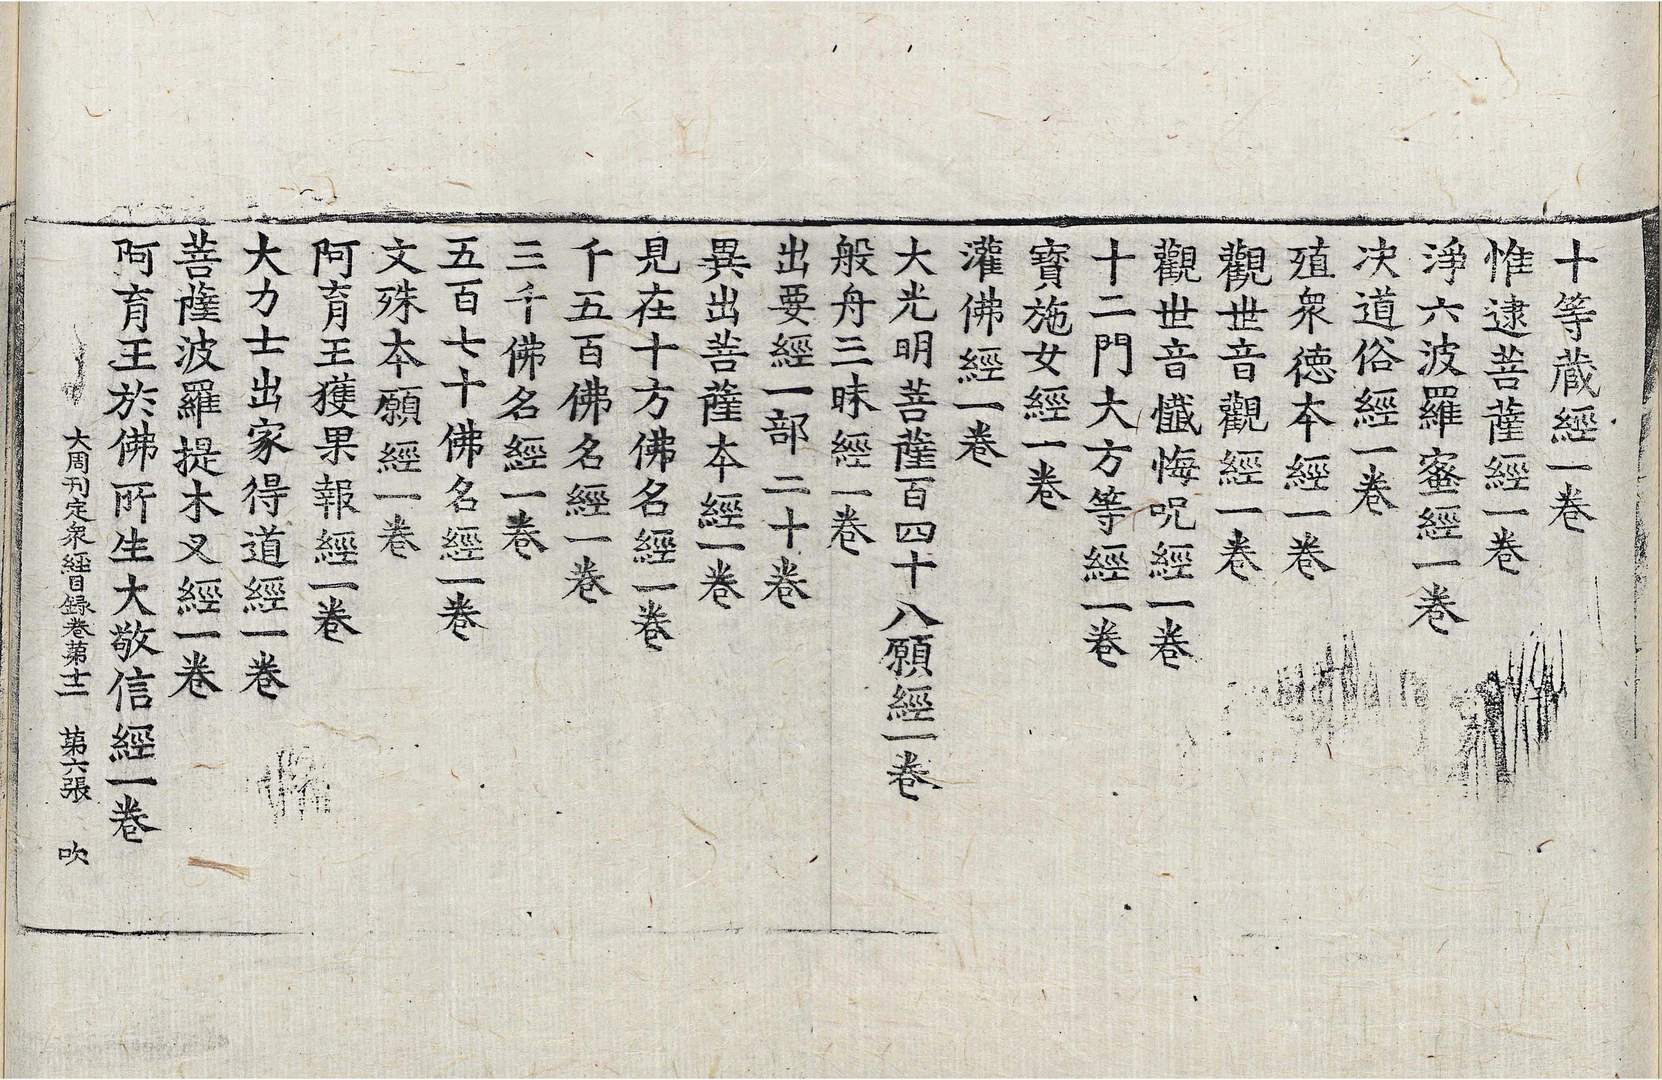 十等藏經一卷
惟逮菩薩經一卷
淨六波羅蜜經一卷
决道俗經一卷
殖衆德本經一卷
觀世音觀經一卷
觀世音懺悔呪經一卷
十二門大方等經一卷
寳施女經一卷
灌佛經一卷
大光明菩薩百四十八願經一卷
般舟三昧經一卷
出要經一部二十卷
異出菩薩本經一卷
見在十方佛名經一卷
千五百佛名經一卷
三千佛名經一卷
五百七十佛名經一卷
文殊本願經一卷
阿育王獲果報經一卷
大力士出家得道經一卷
菩薩波羅提木叉經一卷
阿育王於佛所生大敬信經一卷
大周刊定衆經目録卷第十二 第六張 吹